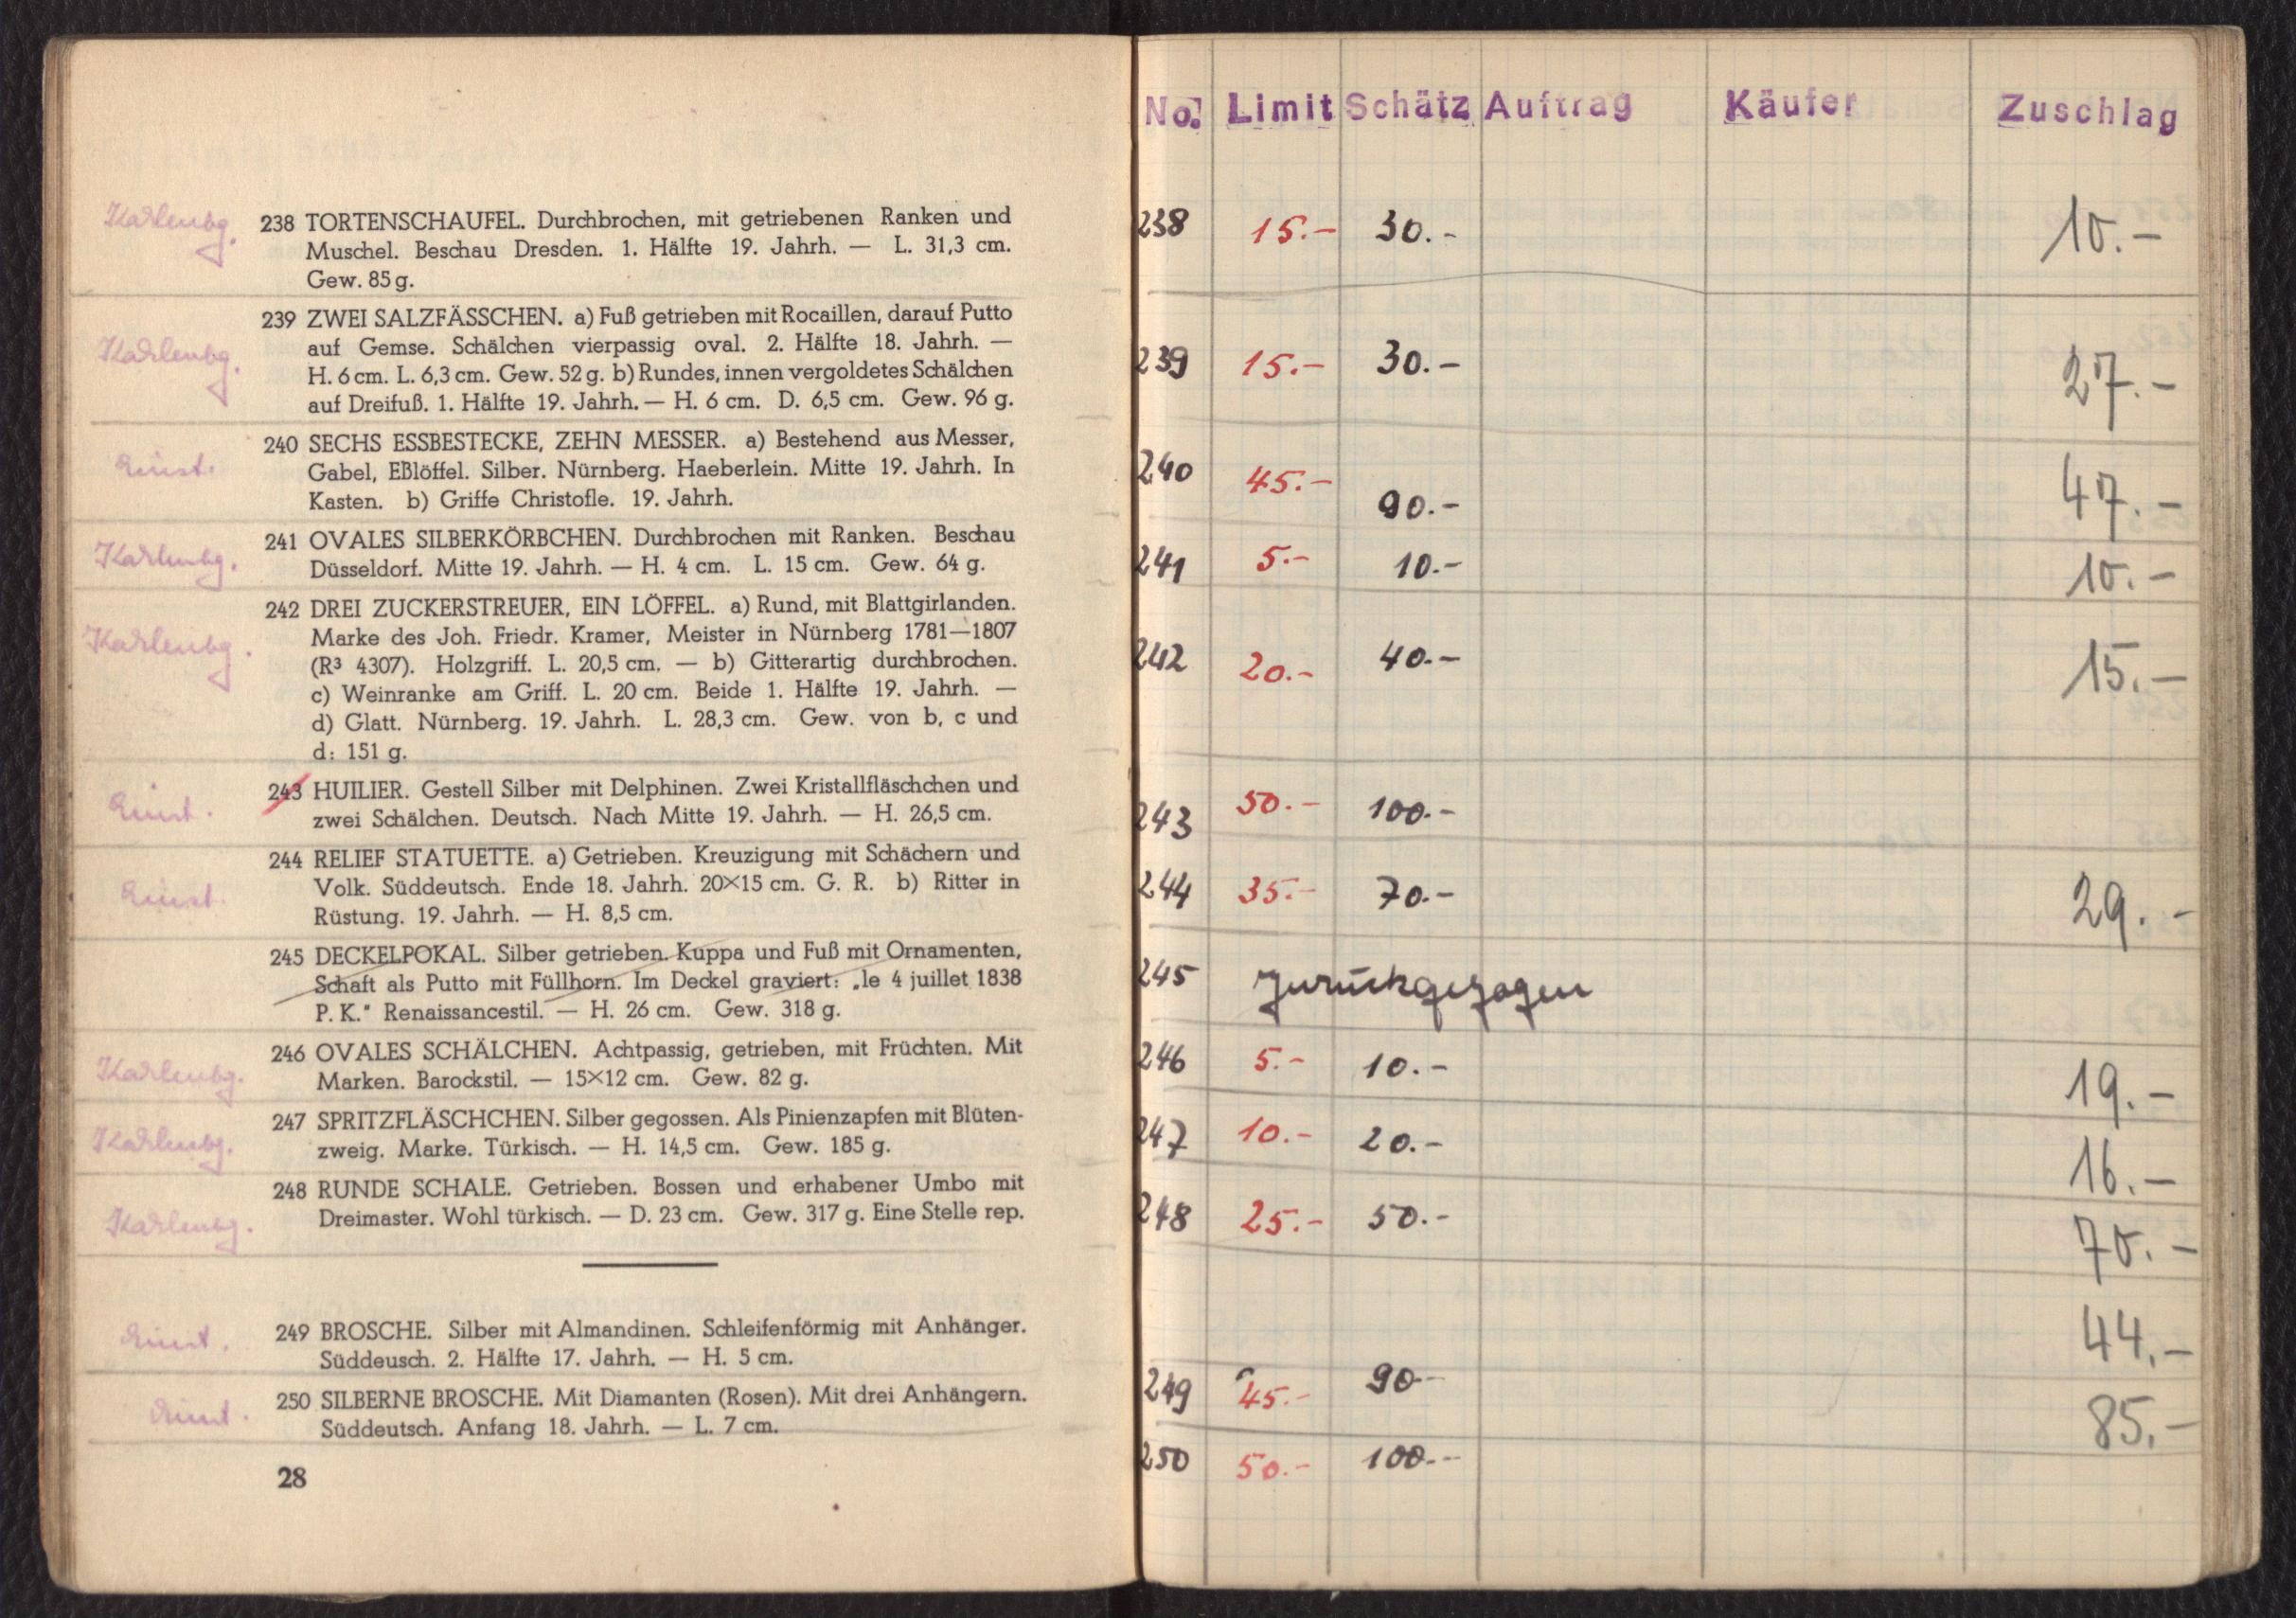 238 TORTENSCHAUFEL. Durchbrochen, mit getriebenen Ranken und
Muschel. Beschau Dresden. 1. Hälfte 19. Jahrh. — L. 31,3 cm.
Gew. 85 g.
239 ZWEI SALZFÄSSCHEN. a) Fuß getrieben mit Rocaillen, darauf Putto
auf Gemse. Schälchen vierpassig oval. 2. Hälfte 18. Jahrh. —
H. 6 cm. L. 6,3 cm. Gew. 52 g. b) Rundes, innen vergoldetes Schälchen
auf Dreifuß. 1. Hälfte 19. Jahrh. — H. 6 cm. D. 6,5 cm. Gew. 96 g.
240 SECHS ESSBESTECKE, ZEHN MESSER. a) Bestehend aus Messer,
Gabel, Eßlöffel. Silber. Nürnberg. Haeberlein. Mitte 19. Jahrh. In
Kasten. b) Griffe Christofle. 19. Jahrh.
241 OVALES SILBERKÖRBCHEN. Durchbrochen mit Ranken. Beschau
Düsseldorf. Mitte 19. Jahrh. — H. 4 cm. L. 15 cm. Gew. 64 g.
242 DREI ZUCKERSTREUER, EIN LÖFFEL. a) Rund, mit Blattgirlanden.
Marke des Joh. Friedr. Kramer, Meister in Nürnberg 1781—1807
(R³ 4307). Holzgriff. L. 20,5 cm. — b) Gitterartig durchbrochen.
c) Weinranke am Griff. L. 20 cm. Beide 1. Hälfte 19. Jahrh. —
d) Glatt. Nürnberg. 19. Jahrh. L. 28,3 cm. Gew. von b, c und
d: 151 g.
243 HUILIER. Gestell Silber mit Delphinen. Zwei Kristallfläschchen und
zwei Schälchen. Deutsch. Nach Mitte 19. Jahrh. — H. 26,5 cm.
244 RELIEF STATUETTE. a) Getrieben. Kreuzigung mit Schächern und
Volk. Süddeutsch. Ende 18. Jahrh. 20×15 cm. G. R. b) Ritter in
Rüstung. 19. Jahrh. — H. 8,5 cm.
245 DECKELPOKAL. Silber getrieben. Kuppa und Fuß mit Ornamenten,
Schaft als Putto mit Füllhorn. Im Deckel graviert: „le 4 juillet 1838
P. K." Renaissancestil. — H. 26 cm. Gew. 318 g.
246 OVALES SCHÄLCHEN. Achtpassig, getrieben, mit Früchten. Mit
Marken. Barockstil. — 15×12 cm. Gew. 82 g.
247 SPRITZFLÄSCHCHEN. Silber gegossen. Als Pinienzapfen mit Blüten-
zweig. Marke. Türkisch. — H. 14,5 cm. Gew. 185 g.
248 RUNDE SCHALE. Getrieben. Bossen und erhabener Umbo mit
Dreimaster. Wohl türkisch. — D. 23 cm. Gew. 317 g. Eine Stelle rep.
249 BROSCHE. Silber mit Almandinen. Schleifenförmig mit Anhänger.
Süddeusch. 2. Hälfte 17. Jahrh. — H. 5 cm.
250 SILBERNE BROSCHE. Mit Diamanten (Rosen). Mit drei Anhängern.
Süddeutsch. Anfang 18. Jahrh. — L. 7 cm.
28
No. Limit Schätz Auftrag Käufer Zuschlag
238 15.- 30.- 10.-
239 15.- 30.- 27.-
240 45.- 90.- 47.-
241 5.- 10.- 10.-
242 20.- 40.- 15.-
243 50.- 100.-
244 35.- 70.- 29.-
245 zurückgezogen
246 5.- 10.- 19.-
247 10.- 20.- 16.-
248 25.- 50.- 70.-
44.-
249 45.- 90.-
85.-
250 50.- 100.-